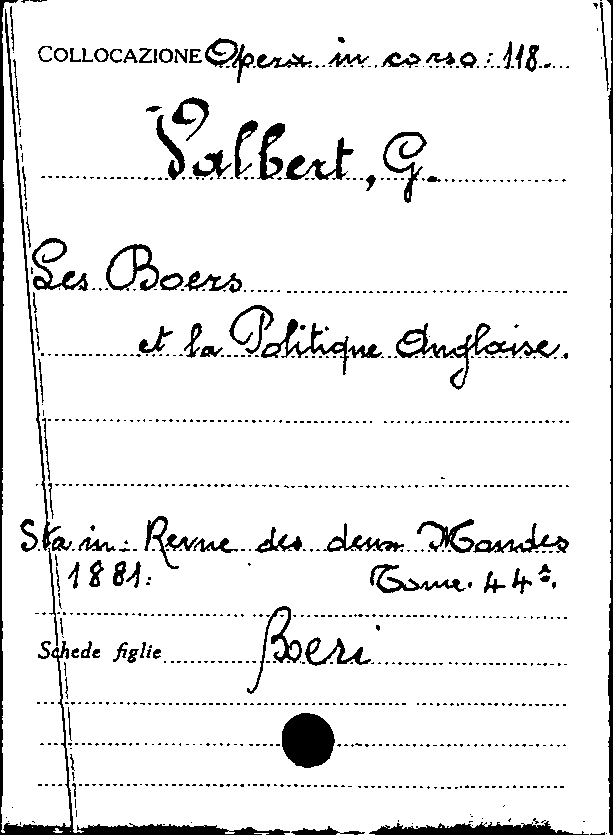 COLLOCAZIONE Opera in corso: 118.
Valbert, G.
Les Boers
et la Politique Anglaise.
Sta in: Revue des deux Mondes
1881. Tome. 44°.
Schede figlie Boeri